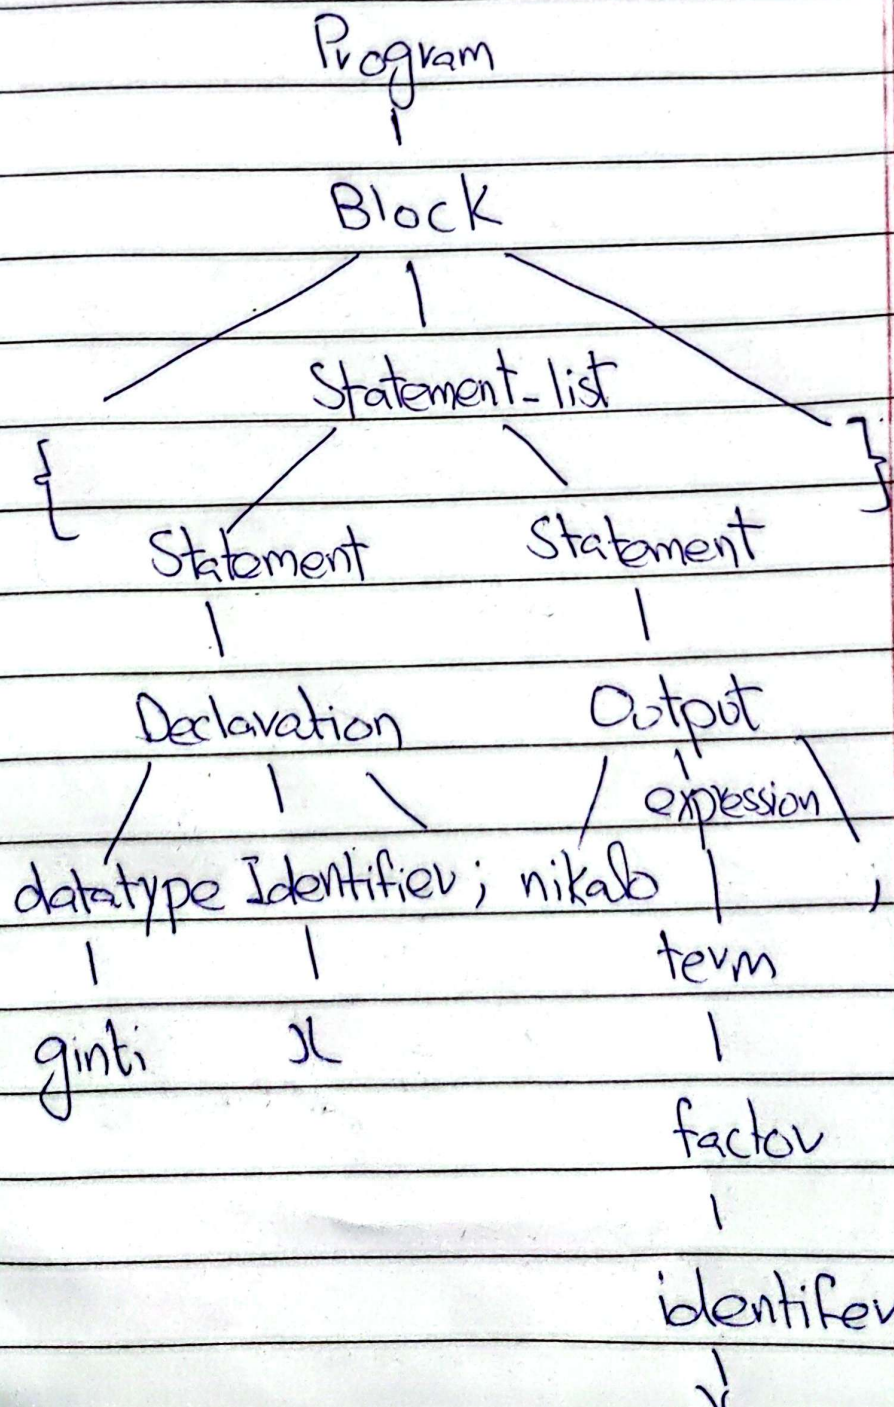 Program
Block
Statement_list
{ }
Statement Statement
Declaration Output
expression
datatype Identifier ; nikalo ;
term
ginti x
factor
identifer